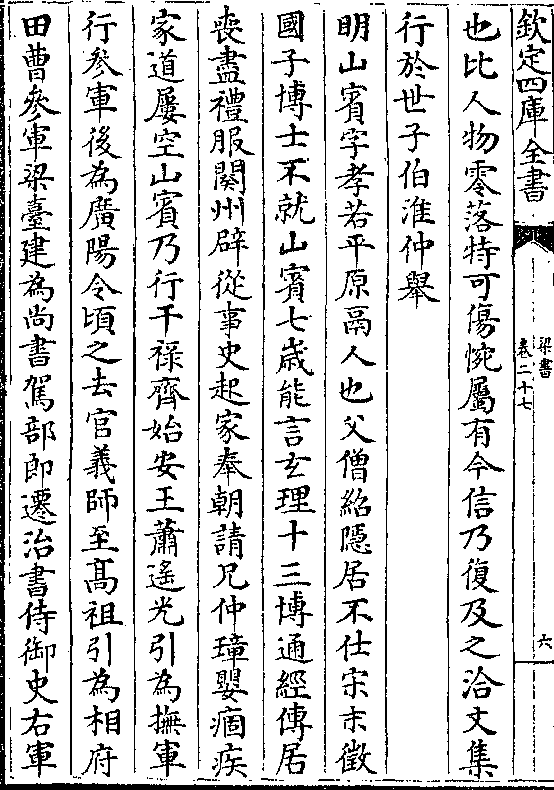 欽定四庫全書
梁書
卷二十七
六
也比人物零落特可傷惋屬有今信乃復及之洽文集
行於世子伯淮仲舉
明山賓字孝若平原鬲人也父僧紹隱居不仕宋末徵
國子博士不就山賓七歳能言玄理十三博通經傳居
喪盡禮服闋州辟從事史起家奉朝請兄仲璋嬰痼疾
家道屢空山賓乃行干祿齊始安王蕭遙光引為撫軍
行參軍後為廣陽令頃之去官義師至髙祖引為相府
田曹參軍梁臺建為尚書駕部郎遷治書侍御史右軍